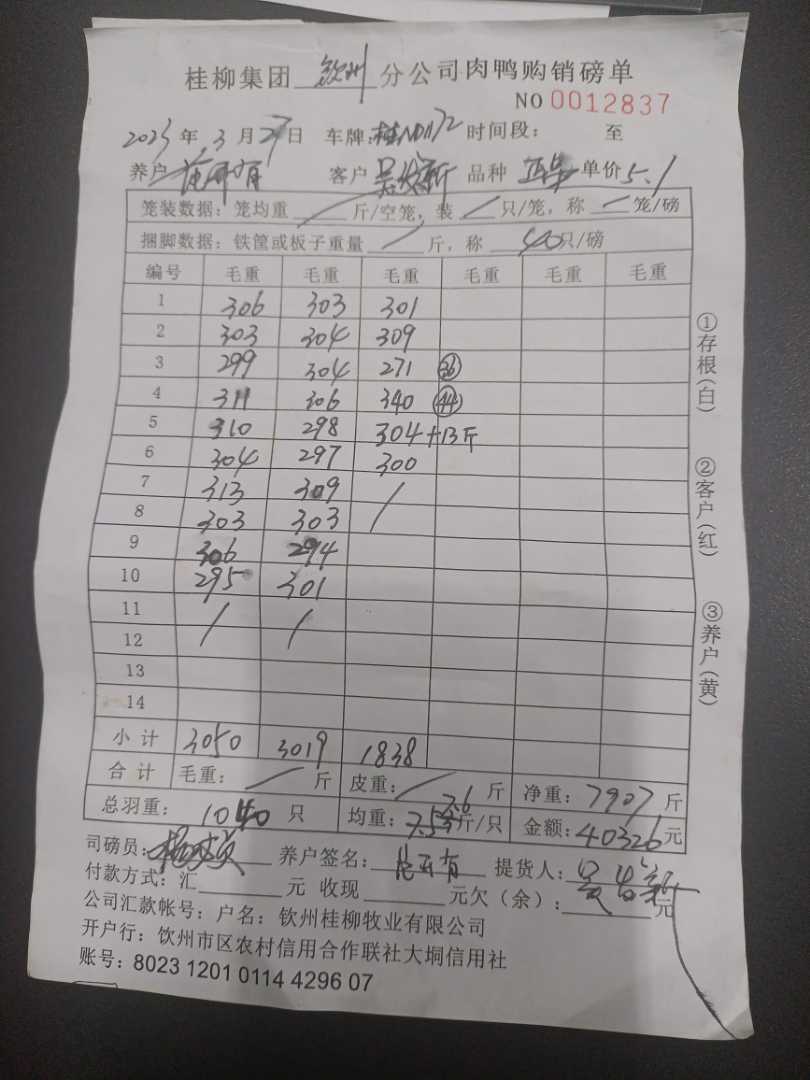 桂柳集团 钦州 分公司肉鸭购销磅单
NO 0012837
2023年 3月27日 车牌: 时间段: 至
养户 客户 品种 单价 5.1
笼装数据: 笼均重 / 斤/空笼, 装 / 只/笼, 称 / 笼/磅
捆脚数据: 铁筐或板子重量 / 斤, 称 40只/磅
编号 毛重 毛重 毛重 毛重 毛重 毛重
1 306 303 301
2 303 304 309
3 299 304 271 36
4 311 306 340 44
5 310 298 304 +13斤
6 304 297 300
7 313 309 /
8 303 303
9 306 294
10 295 301
11 / /
12
13
14
小计 3050 3019 1838
合计 毛重: / 斤 皮重: / 斤 净重: 7907 斤
总羽重: 1040 只 均重: 7.6 斤/只 金额: 40326 元
司磅员: 养户签名: 提货人:
付款方式: 汇 元 收现 元欠(余): 元
公司汇款帐号: 户名: 钦州桂柳牧业有限公司
开户行: 钦州市区农村信用合作联社大垌信用社
账号: 8023 1201 0114 4296 07
①存根(白)
②客户(红)
③养户(黄)